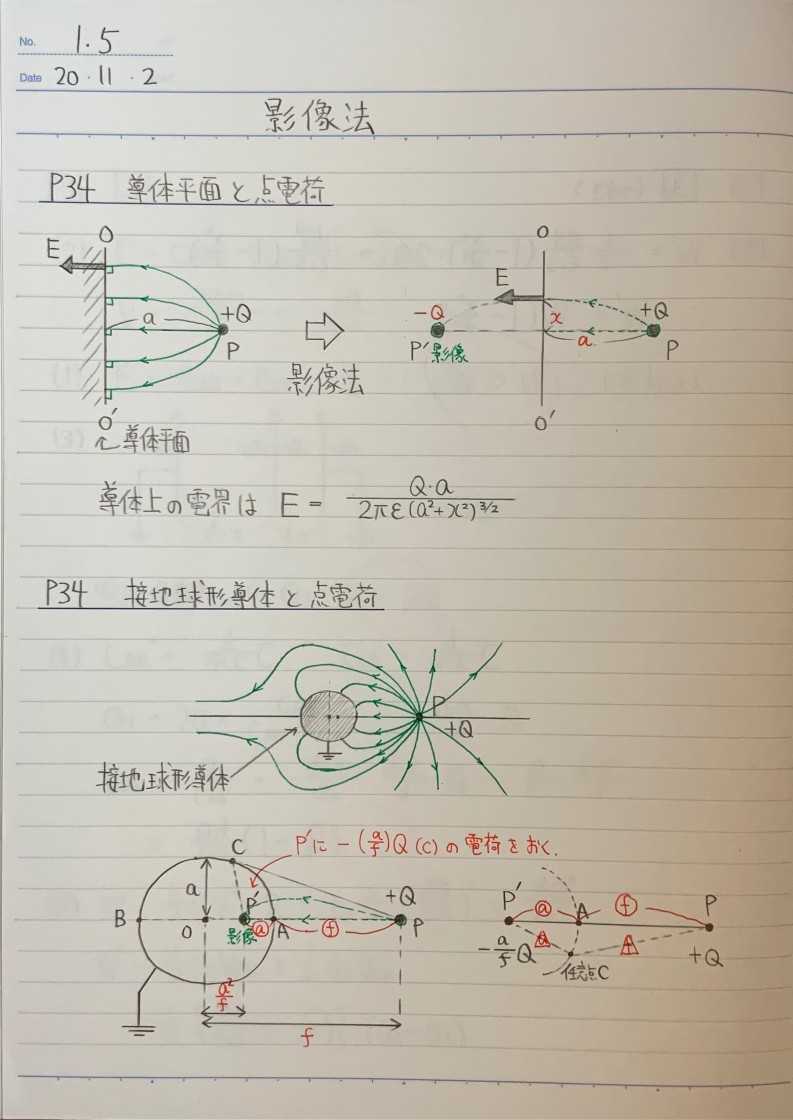 No. 1.5
Date 20・11・2
影像法
P34 導体平面と点電荷
O
E
a
+Q
P
O'
導体平面
影像法
O
E
-Q
P' 影像
x
a
+Q
P
O'
導体上の電界は E = Q·a / 2πε(a²+x²)^3/2
P34 接地球形導体と点電荷
P
+Q
接地球形導体
P'に -(a/f)Q (C) の電荷をおく.
C
a
P'
+Q
B
O
影像
ⓐ
A
ⓕ
P
a²/f
f
P'
ⓐ
A
ⓕ
P
-a/f Q
a
f
+Q
任意点C